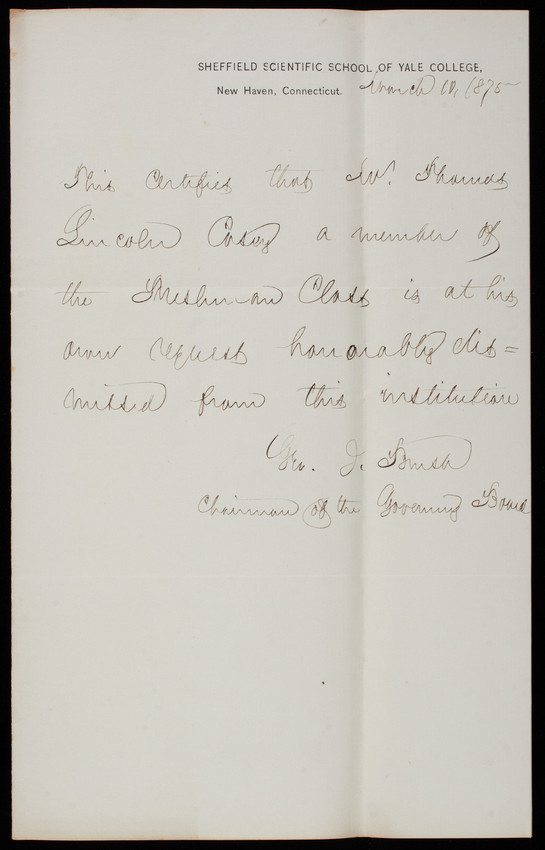 SHEFFIELD SCIENTIFIC SCHOOL OF YALE COLLEGE,
New Haven, Connecticut. March 10, 1875
This certifies that Mr. Thomas
Lincoln Casey a member of
the Freshman Class is at his
own request honorably dis=
missed from this institution
Geo. J. Brush
Chairman of the Governing Board